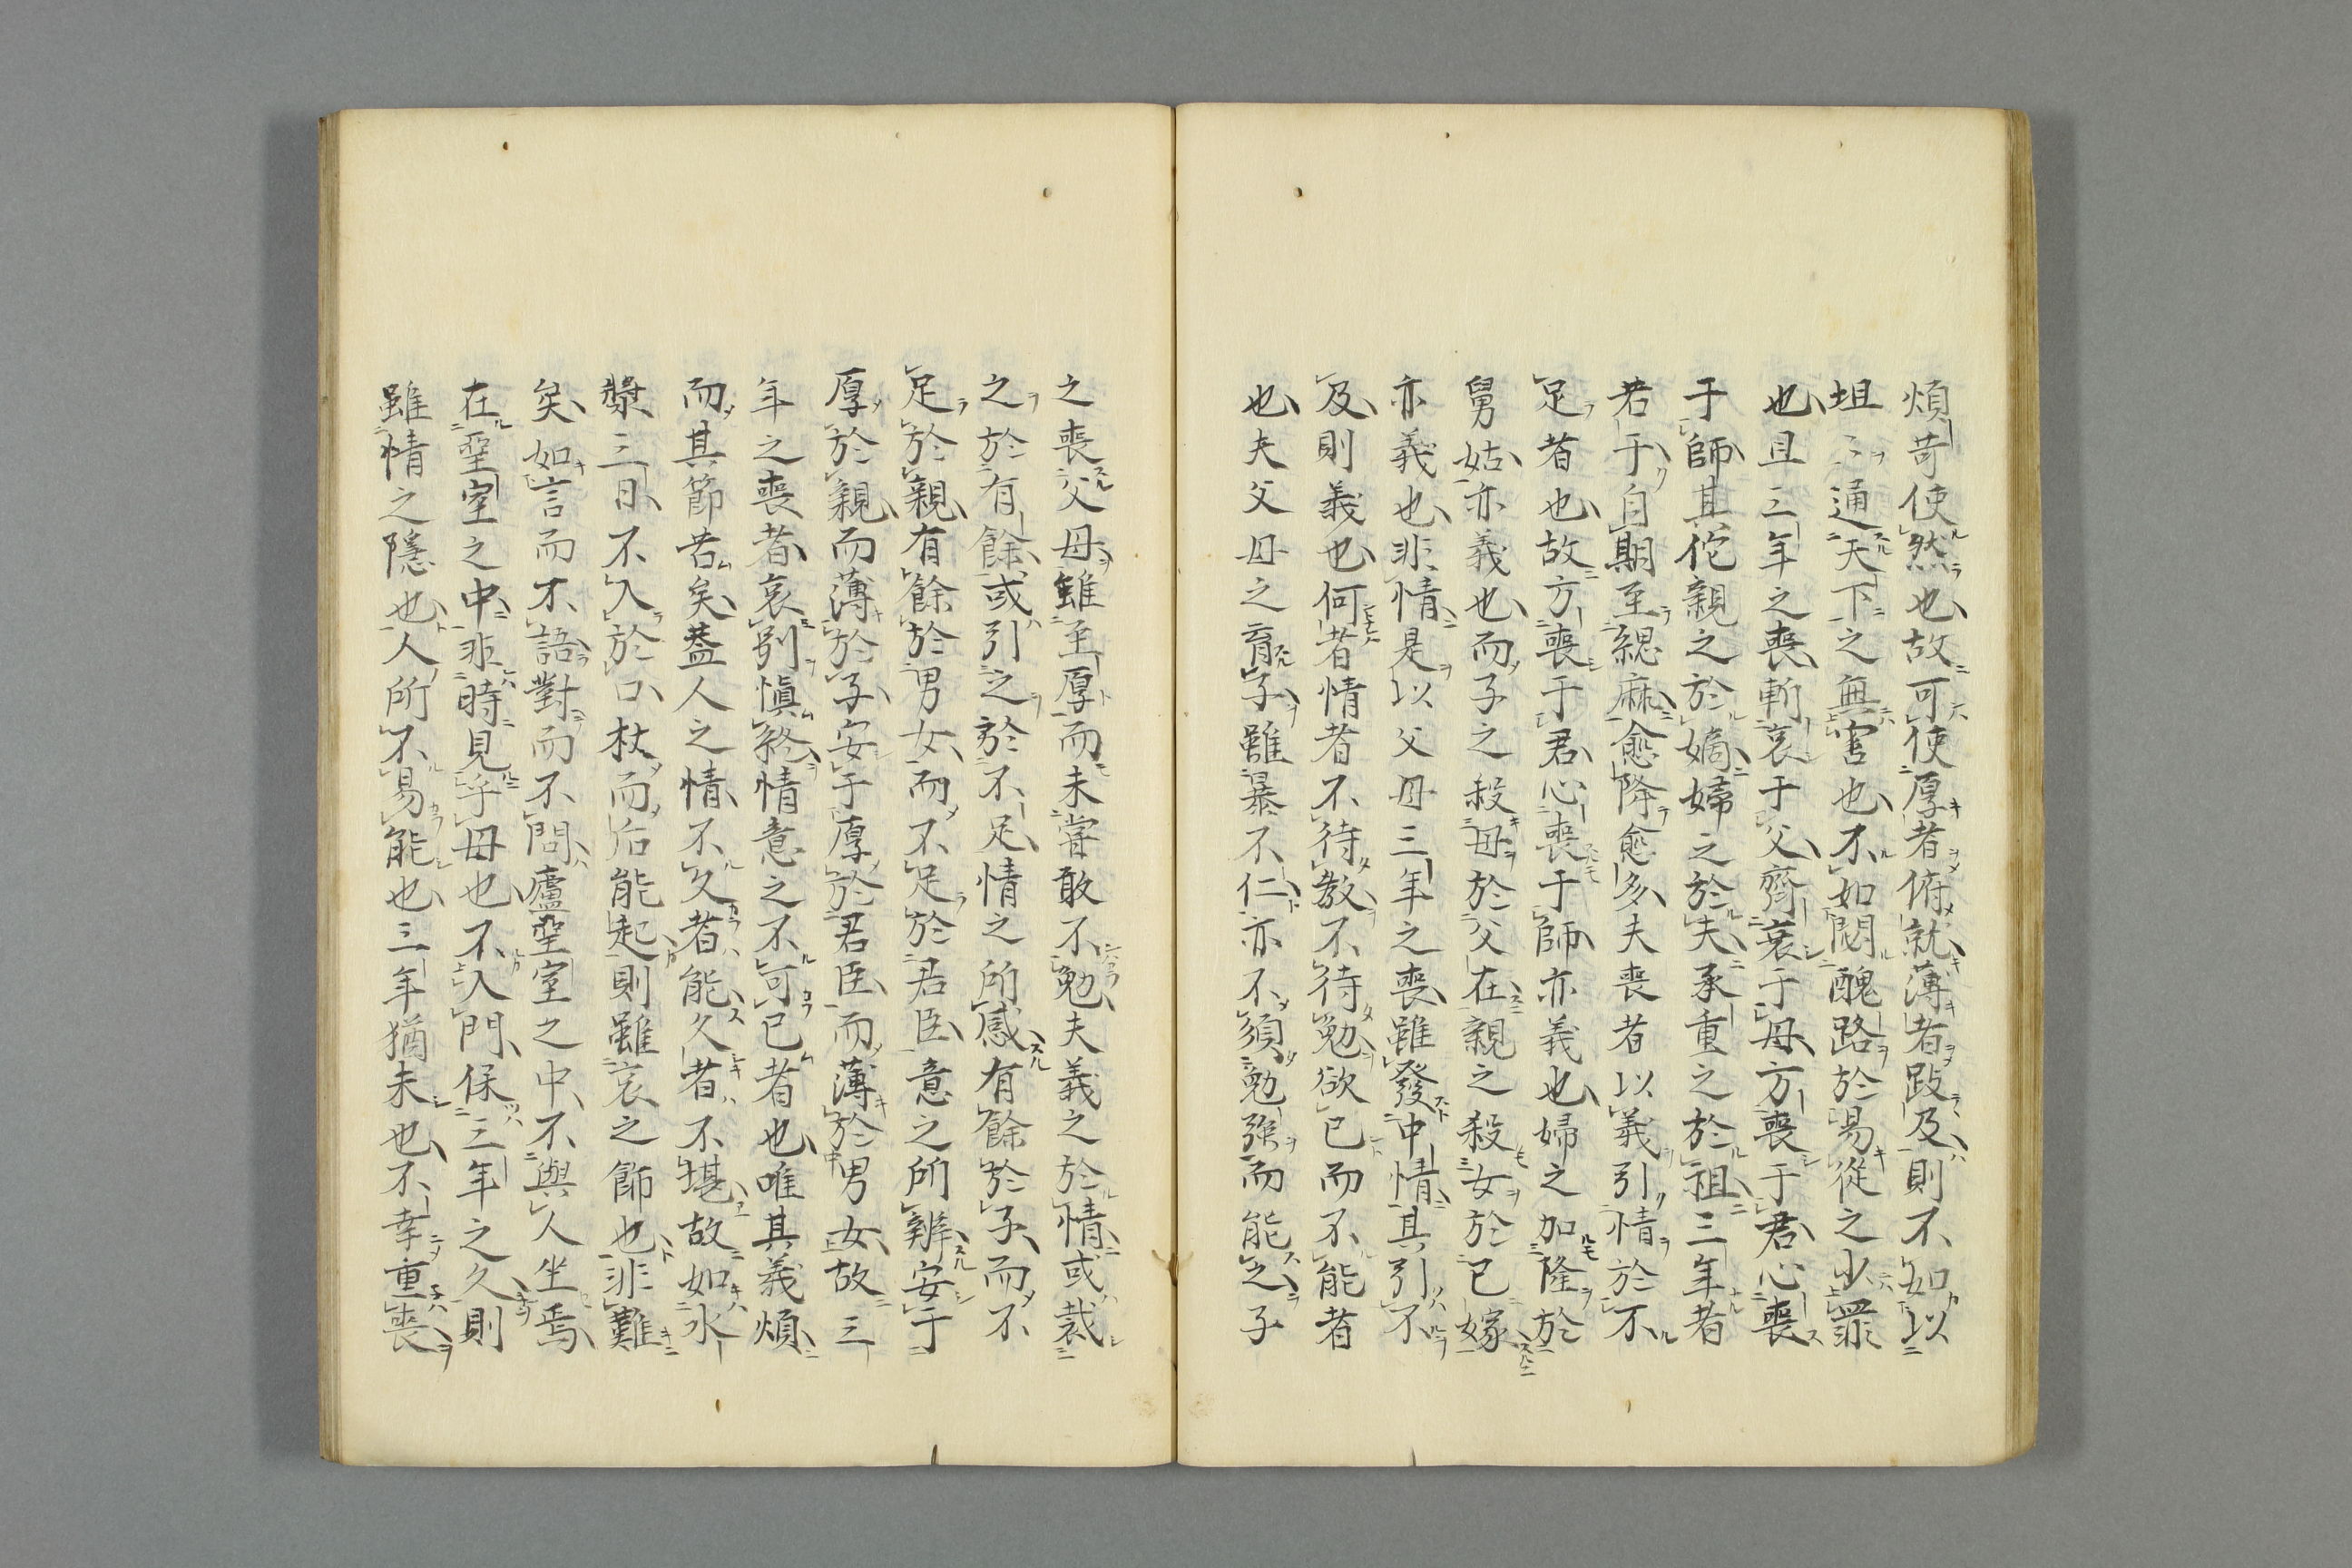 煩苛使然也故可使厚者俯就薄者跂及則不如以
坦〻通天下之無害也不如閟醜路於易從之少罪
也且三年之喪斬衰于父齊衰于母方喪于君心喪
于師其佗親之於嫡婦之於夫承重之於祖三年者
若干自期至緦麻愈降愈多夫喪者以義引情於不
足者也故方喪于君心喪于師亦義也婦之加隆於
舅姑亦義也而子之殺母於父在親之殺女於已嫁
亦義也非情是以父母三年之喪雖發中情其引不
及則義也何者情者不待教不待勉欲已而不能者
也夫父母之育子雖暴不仁亦不須勉強而能之子
之喪父母雖至厚而未嘗敢不勉夫義之於情或裁
之於有餘或引之於不足情之所感有餘於子而不
足於親有餘於男女而不足於君臣意之所辨安于
厚於親而薄於子安于厚於君臣而薄於男女故三
年之喪者哀別愼終情意之不可已者也唯其義煩
而其節苦矣蓋人之情不久者能久者不堪故如水
漿三日不入於口杖而后能起則雖哀之飾也非難
矣如言而不語對而不問廬堊室之中不與人坐焉
在堊室之中非時見乎母也不入門保三年之久則
雖情之隱也人所不易能也三年猶未也不幸重喪